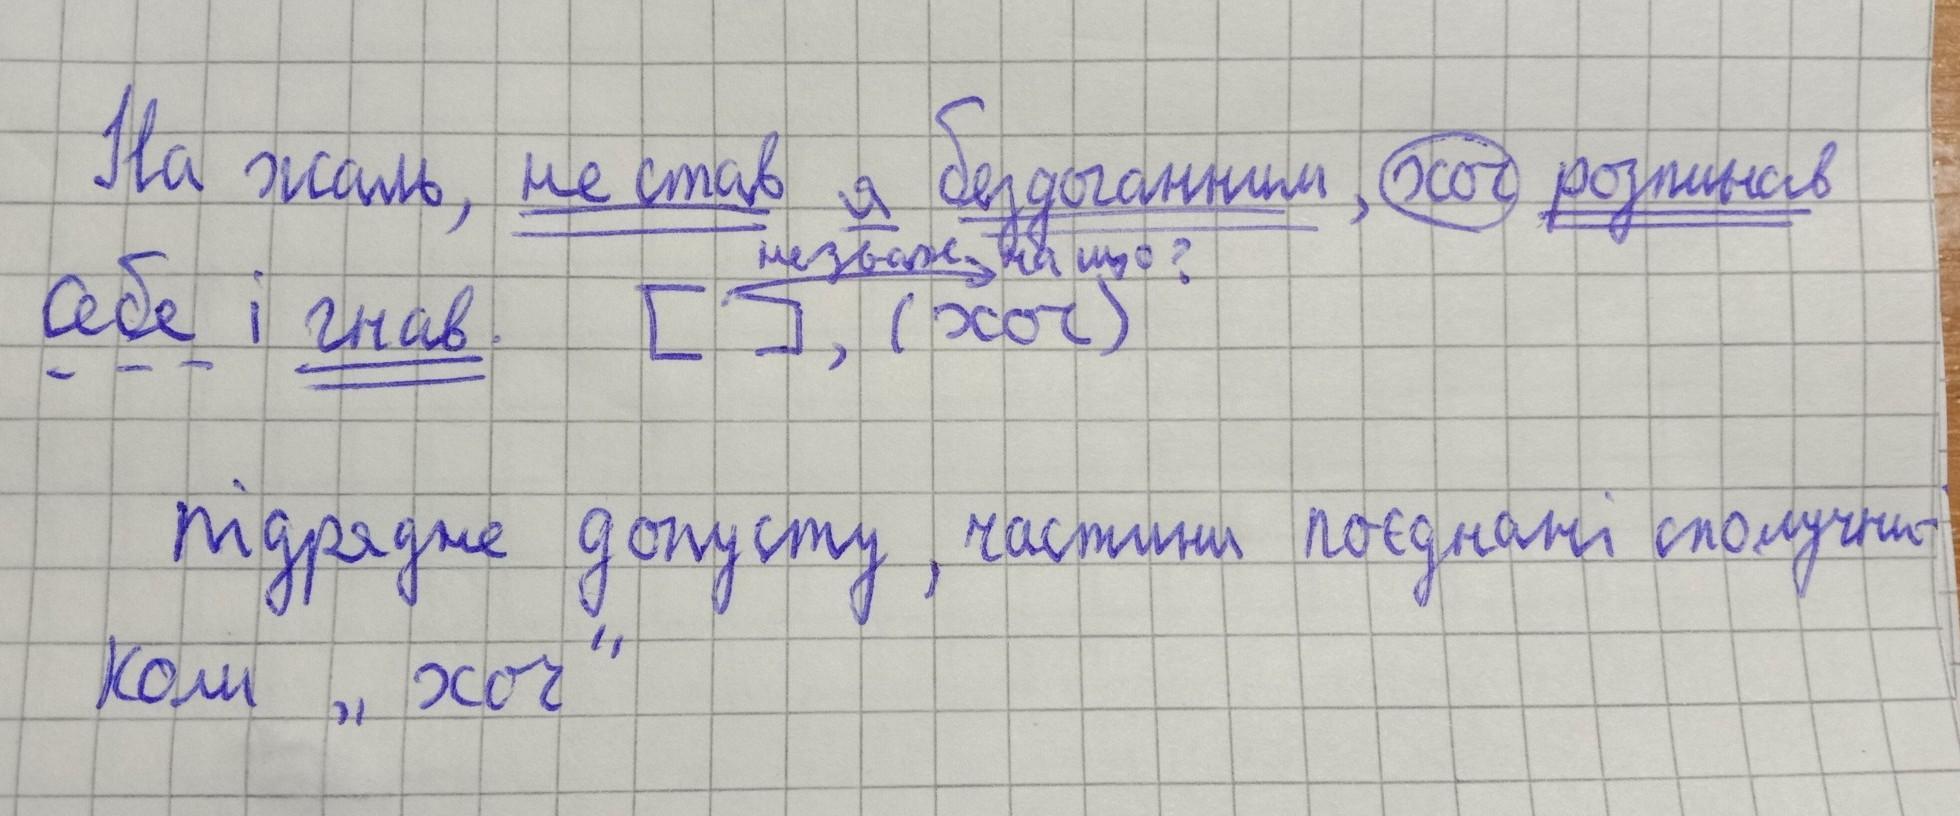 На жаль, не став я бездоганним, хоч розпинав
незваж. на що?
себе і гнав. [ ], (хоч)
підрядне допусту, частини поєднані сполучни-
ком „хоч“